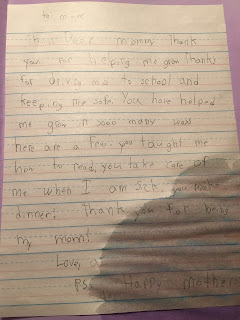 Dear mommy Thank
you for helping me grow Thanks
for driving me to school and
keeping me safe. You have helped
me grow in sooo many ways
here are a few: you taught me
how to read, you take care of
me when I am sick, you make
dinner! Thank you for being
my mom!
Love,
PS: Happy Mothers